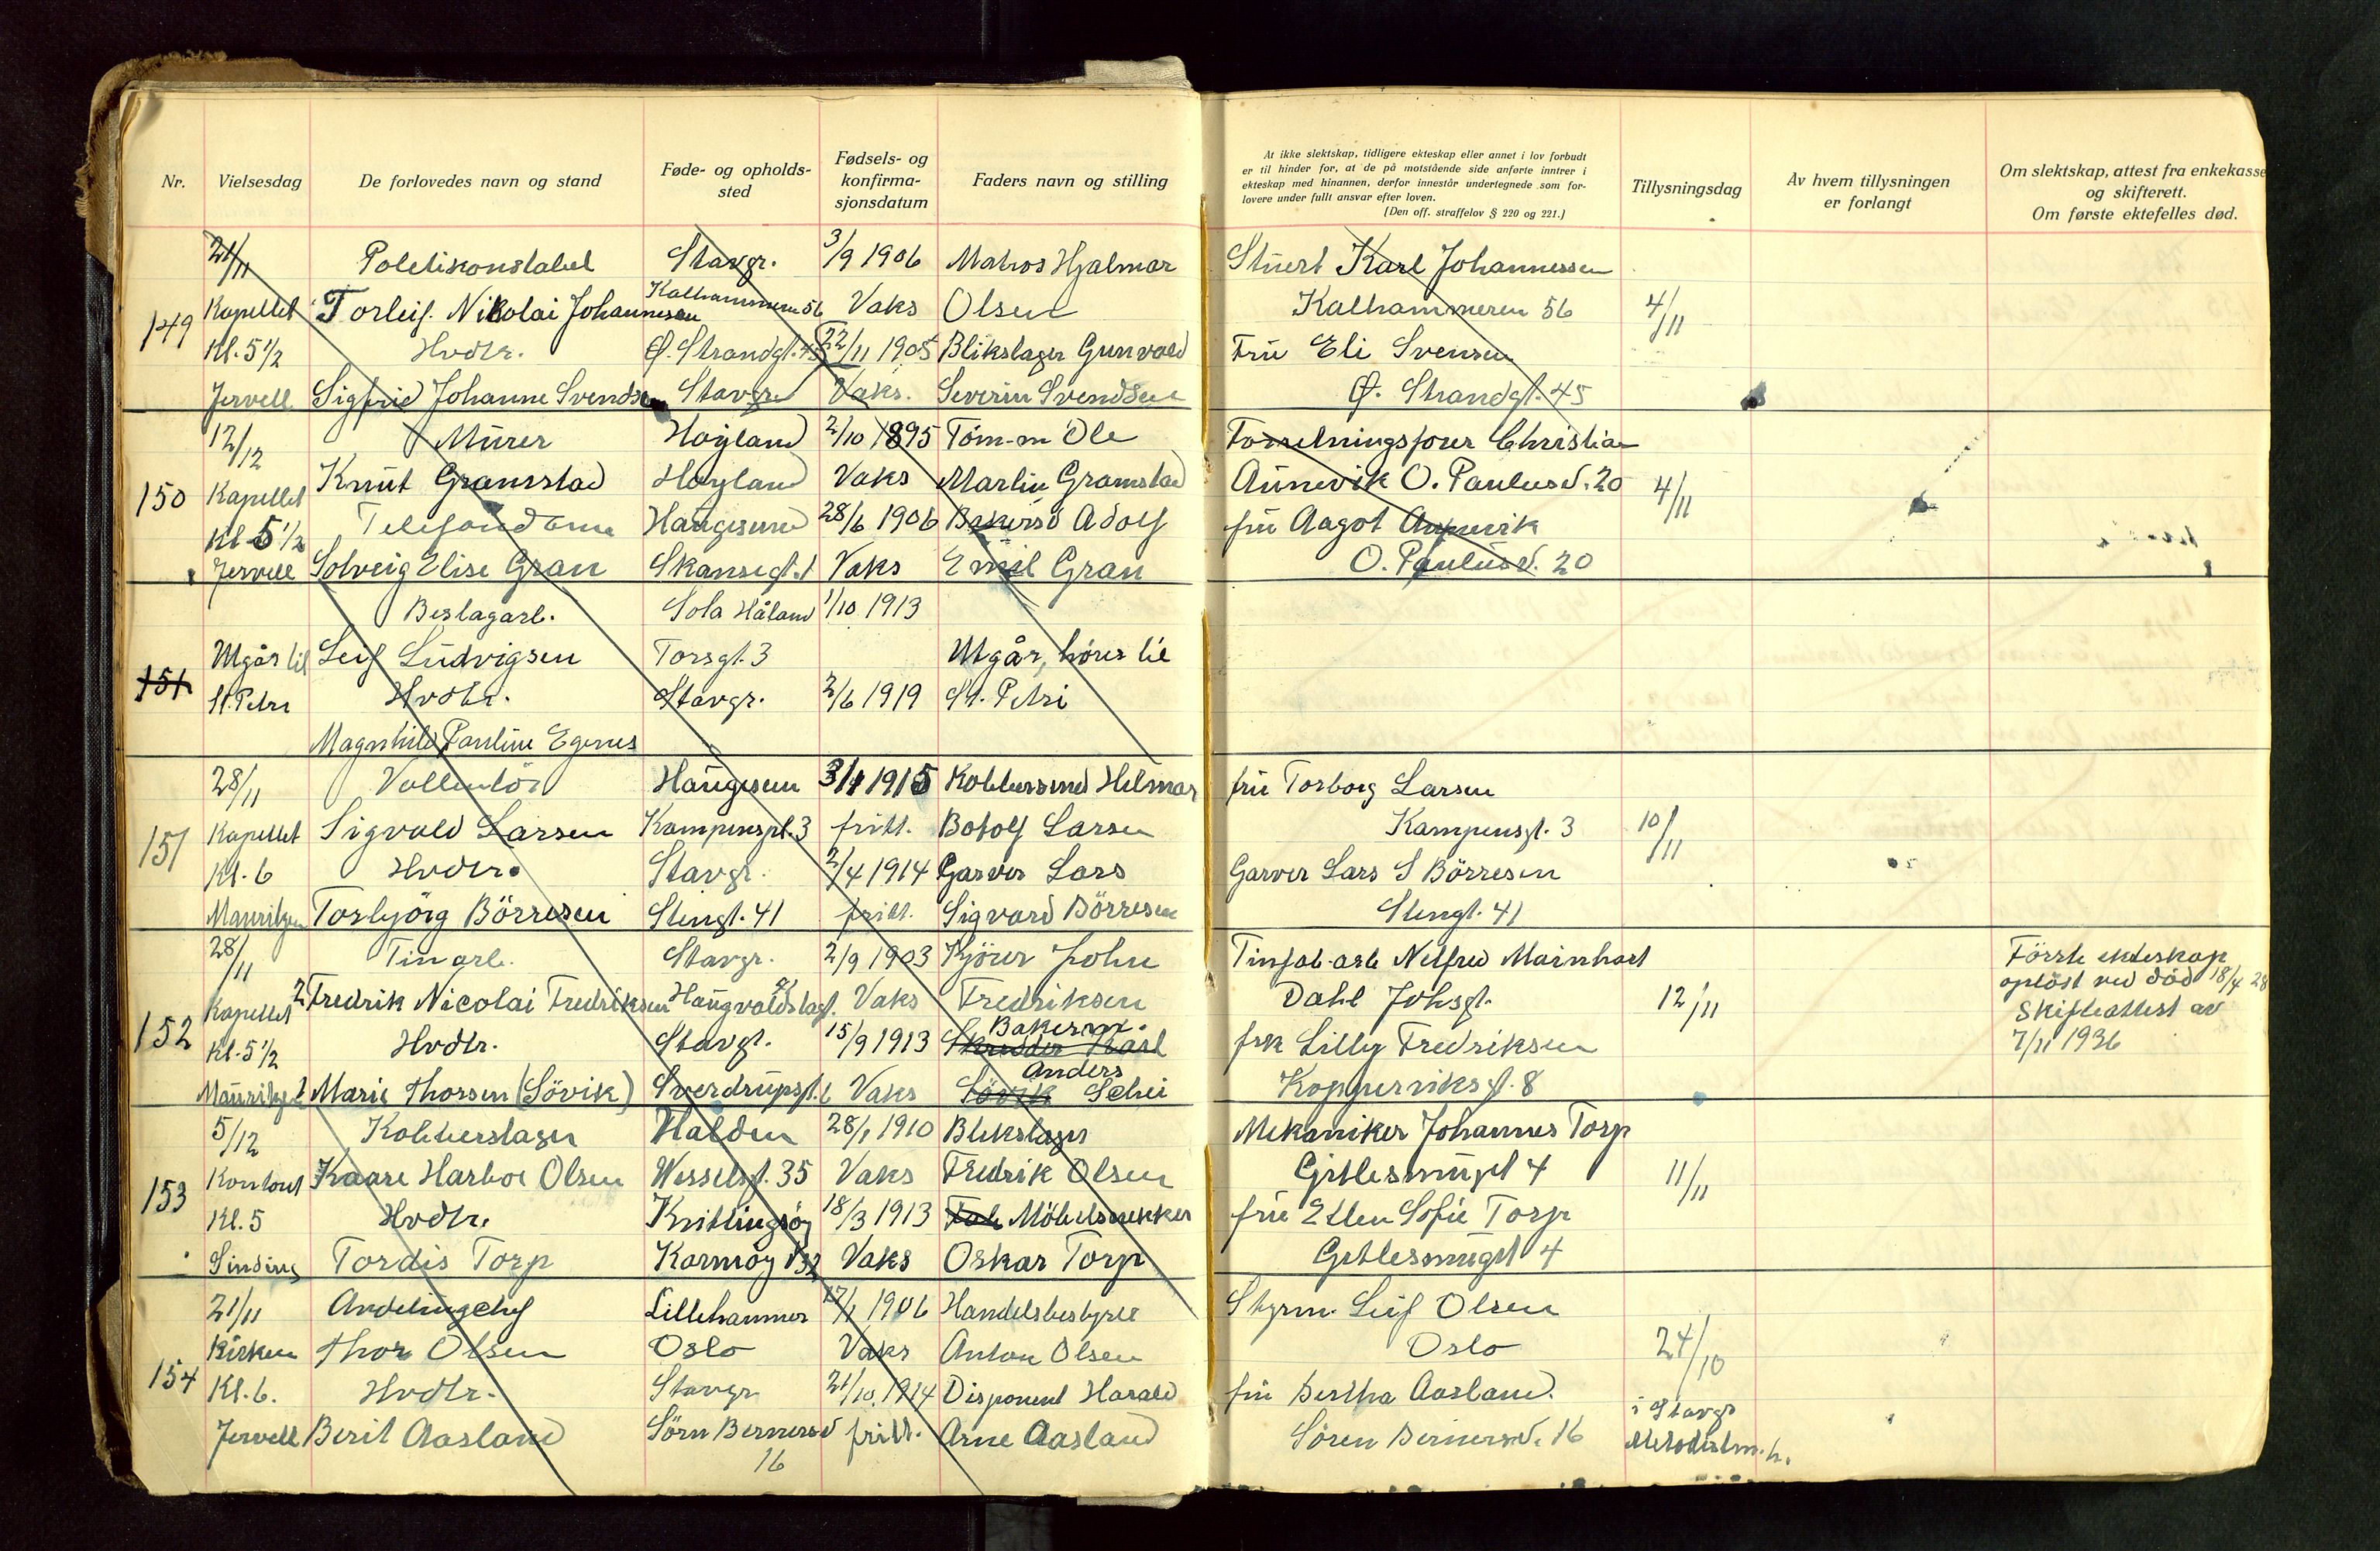 Nr.
Vielsesdag
De forlovedes navn og stand
Føde- og opholds-
sted
Fødsels- og
konfirma-
sjonsdatum
Faders navn og stilling
At ikke slektskap, tidligere ekteskap eller annet i lov forbudt
er til hinder for, at de på motstående side anførte inntrer i
ekteskap med hinannen, derfor innestår undertegnede som for-
lovere under fullt ansvar efter loven.
(Den off. straffelov § 220 og 221.)
Tillysningsdag
Av hvem tillysningen
er forlangt
Om slektskap, attest fra enkekasse
og skifterett.
Om første ektefelles død.
21/11 Politikonstabel Stavgr. 3/9 1906 Matros Hjalmar Stuert Karl Johannessen
149 Kapellet Torleif Nikolai Johannesen Kalhammeren 56 Vaks Olsen Kalhammeren 56 4/11
Kl. 5 1/2 Hvdtr. Ø. Strandgt. 45 22/11 1905 Blikslager Gunvald Fru Eli Svensen
Jervell Sigfrid Johanne Svendsen Stavgr Vaks. Severin Svendsen Ø. Strandgt. 45
12/12 Murer Høyland 2/10 1895 Töm-m Ole Forretningsfører Christian
150 Kapellet Knut Gramstad Høyland Vaks Martin Gramstad Aunevik O. Paulusd. 20 4/11
Kl 5 1/2 Telefondame Haugesund 28/6 1906 Bakers Adolf fru Aagot Aunevik
Jervell Solveig Elise Gran Skansegt. 1 Vaks Emil Gran O. Paulusd. 20
Beslagarb. Sola Håland 1/10 1913
151 Utgår til Leif Ludvigsen Torsgt. 3 Utgår, hører til
St. Petri Hvdtr. Stavgr. 2/6 1919 St. Petri
Magnhild Pauline Egenes
28/11 Vollentör Haugesun 3/1 1915 Kobbersmed Hilmar fru Torborg Larsen
151 Kapellet Sigvald Larsen Kampensgt. 3 fritt. Botolf Larsen Kampensgt. 3 10/11
Kl. 6 Hvdtr. Stavgr. 2/4 1914 Garver Lars Garver Lars S Börresen
Mauritzen Torbjörg Börresen Stengt. 41 fritt. Sigvard Börresen Stengt. 41
28/11 Tinarb. Stavgr. 2/9 1903 Kjörer John Tinfab-arb Nelfred Mainhart Förste ekteskap
152 Kapellet 2 Fredrik Nicolai Fredriksen Haugvaldstagt. Vaks Fredriksen Dahl Johsgt. 12/11 oplöst ved död 18/4 28
Kl. 5 1/2 Hvdtr. Stavgr. 15/9 1913 Skredder Karl Bakerm. frk Lilly Fredriksen Skifteattest av
7/11 1936
Mauritzen 1 Marie Thorsen (Sövik) Sverdrupsgt. 6 Vaks Sövik Anders Schei Kopperviksgt. 8
5/12 Kobberslager Halden 28/1 1910 Blikslager Mekaniker Johannes Torp
153 Kontoret Kaare Harboe Olsen Wesselsgt. 35 Vaks Fredrik Olsen Gjitlesmuget 4 11/11
Kl. 5 Hvdtr. 18/3 1913 Fab Möbelsnekker fru Ellen Sofie Torp
Sinding Tordis Torp Karmøy Vaks Oskar Torp Gitlesmuget 4
21/11 Avdelingchef Lillehammer 17/1 1906 Handelsbestyrer Styrm. Leif Olsen
154 Kirken Thor Olsen Oslo Vaks Anton Olsen Oslo 24/10
Kl. 6. Hvdtr. Stavgr 21/10. 1914 Disponent Harald fru Bertha Aasland. i Stavgr
Jervell Berit Aasland Sörn Bernersd 16 fritt. Arne Aasland Sören Bernersd. 16 Metodistm. h.